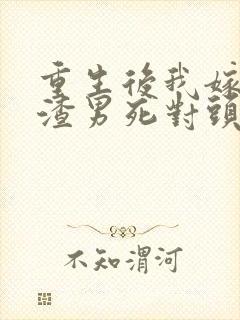 重生後我嫁
渣男死對頭
不知渭河